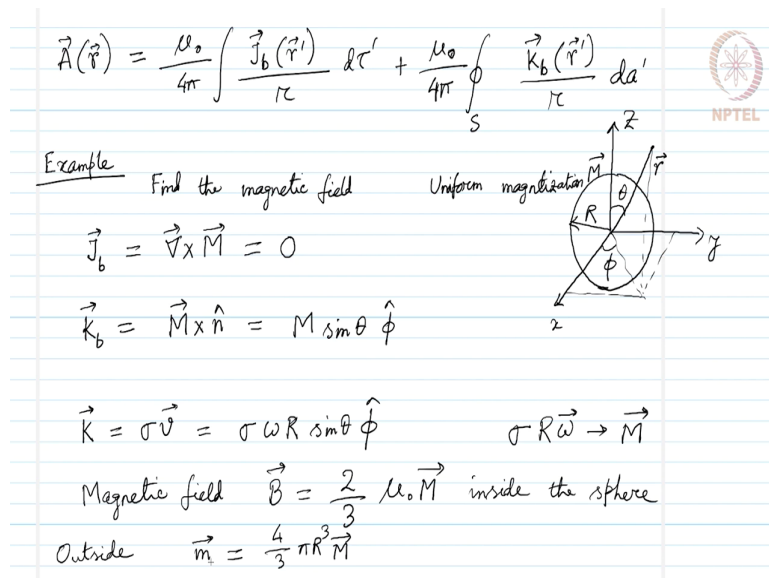 A⃗(r⃗) = μ₀/4π ∫ J⃗_b(r⃗′)/r dτ′ + μ₀/4π ∮_S K⃗_b(r⃗′)/r da′
NPTEL
Example Find the magnetic field Uniform magntization M⃗
Z
r⃗
θ
R
y
ϕ
x
J⃗_b = ∇⃗ × M⃗ = 0
K⃗_b = M⃗ × n̂ = M sin θ ϕ̂
K⃗ = σ v⃗ = σ ω R sin θ ϕ̂ σ R ω⃗ → M⃗
Magnetic field B⃗ = 2/3 μ₀ M⃗ inside the sphere
Outside m⃗ = 4/3 π R³ M⃗